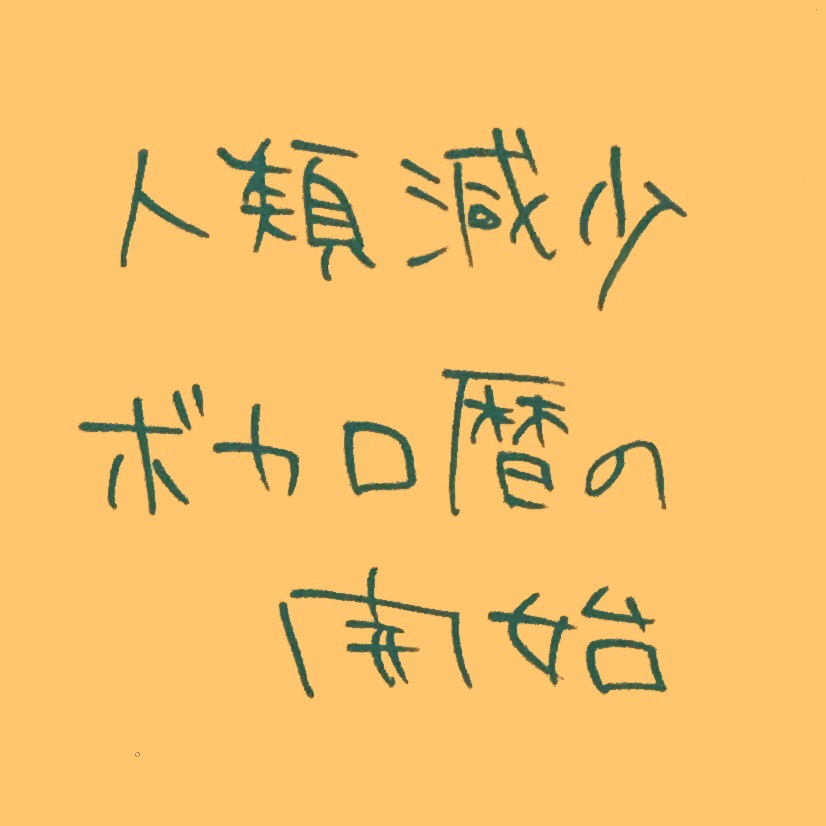 人類減少
ボカロ暦の
開始